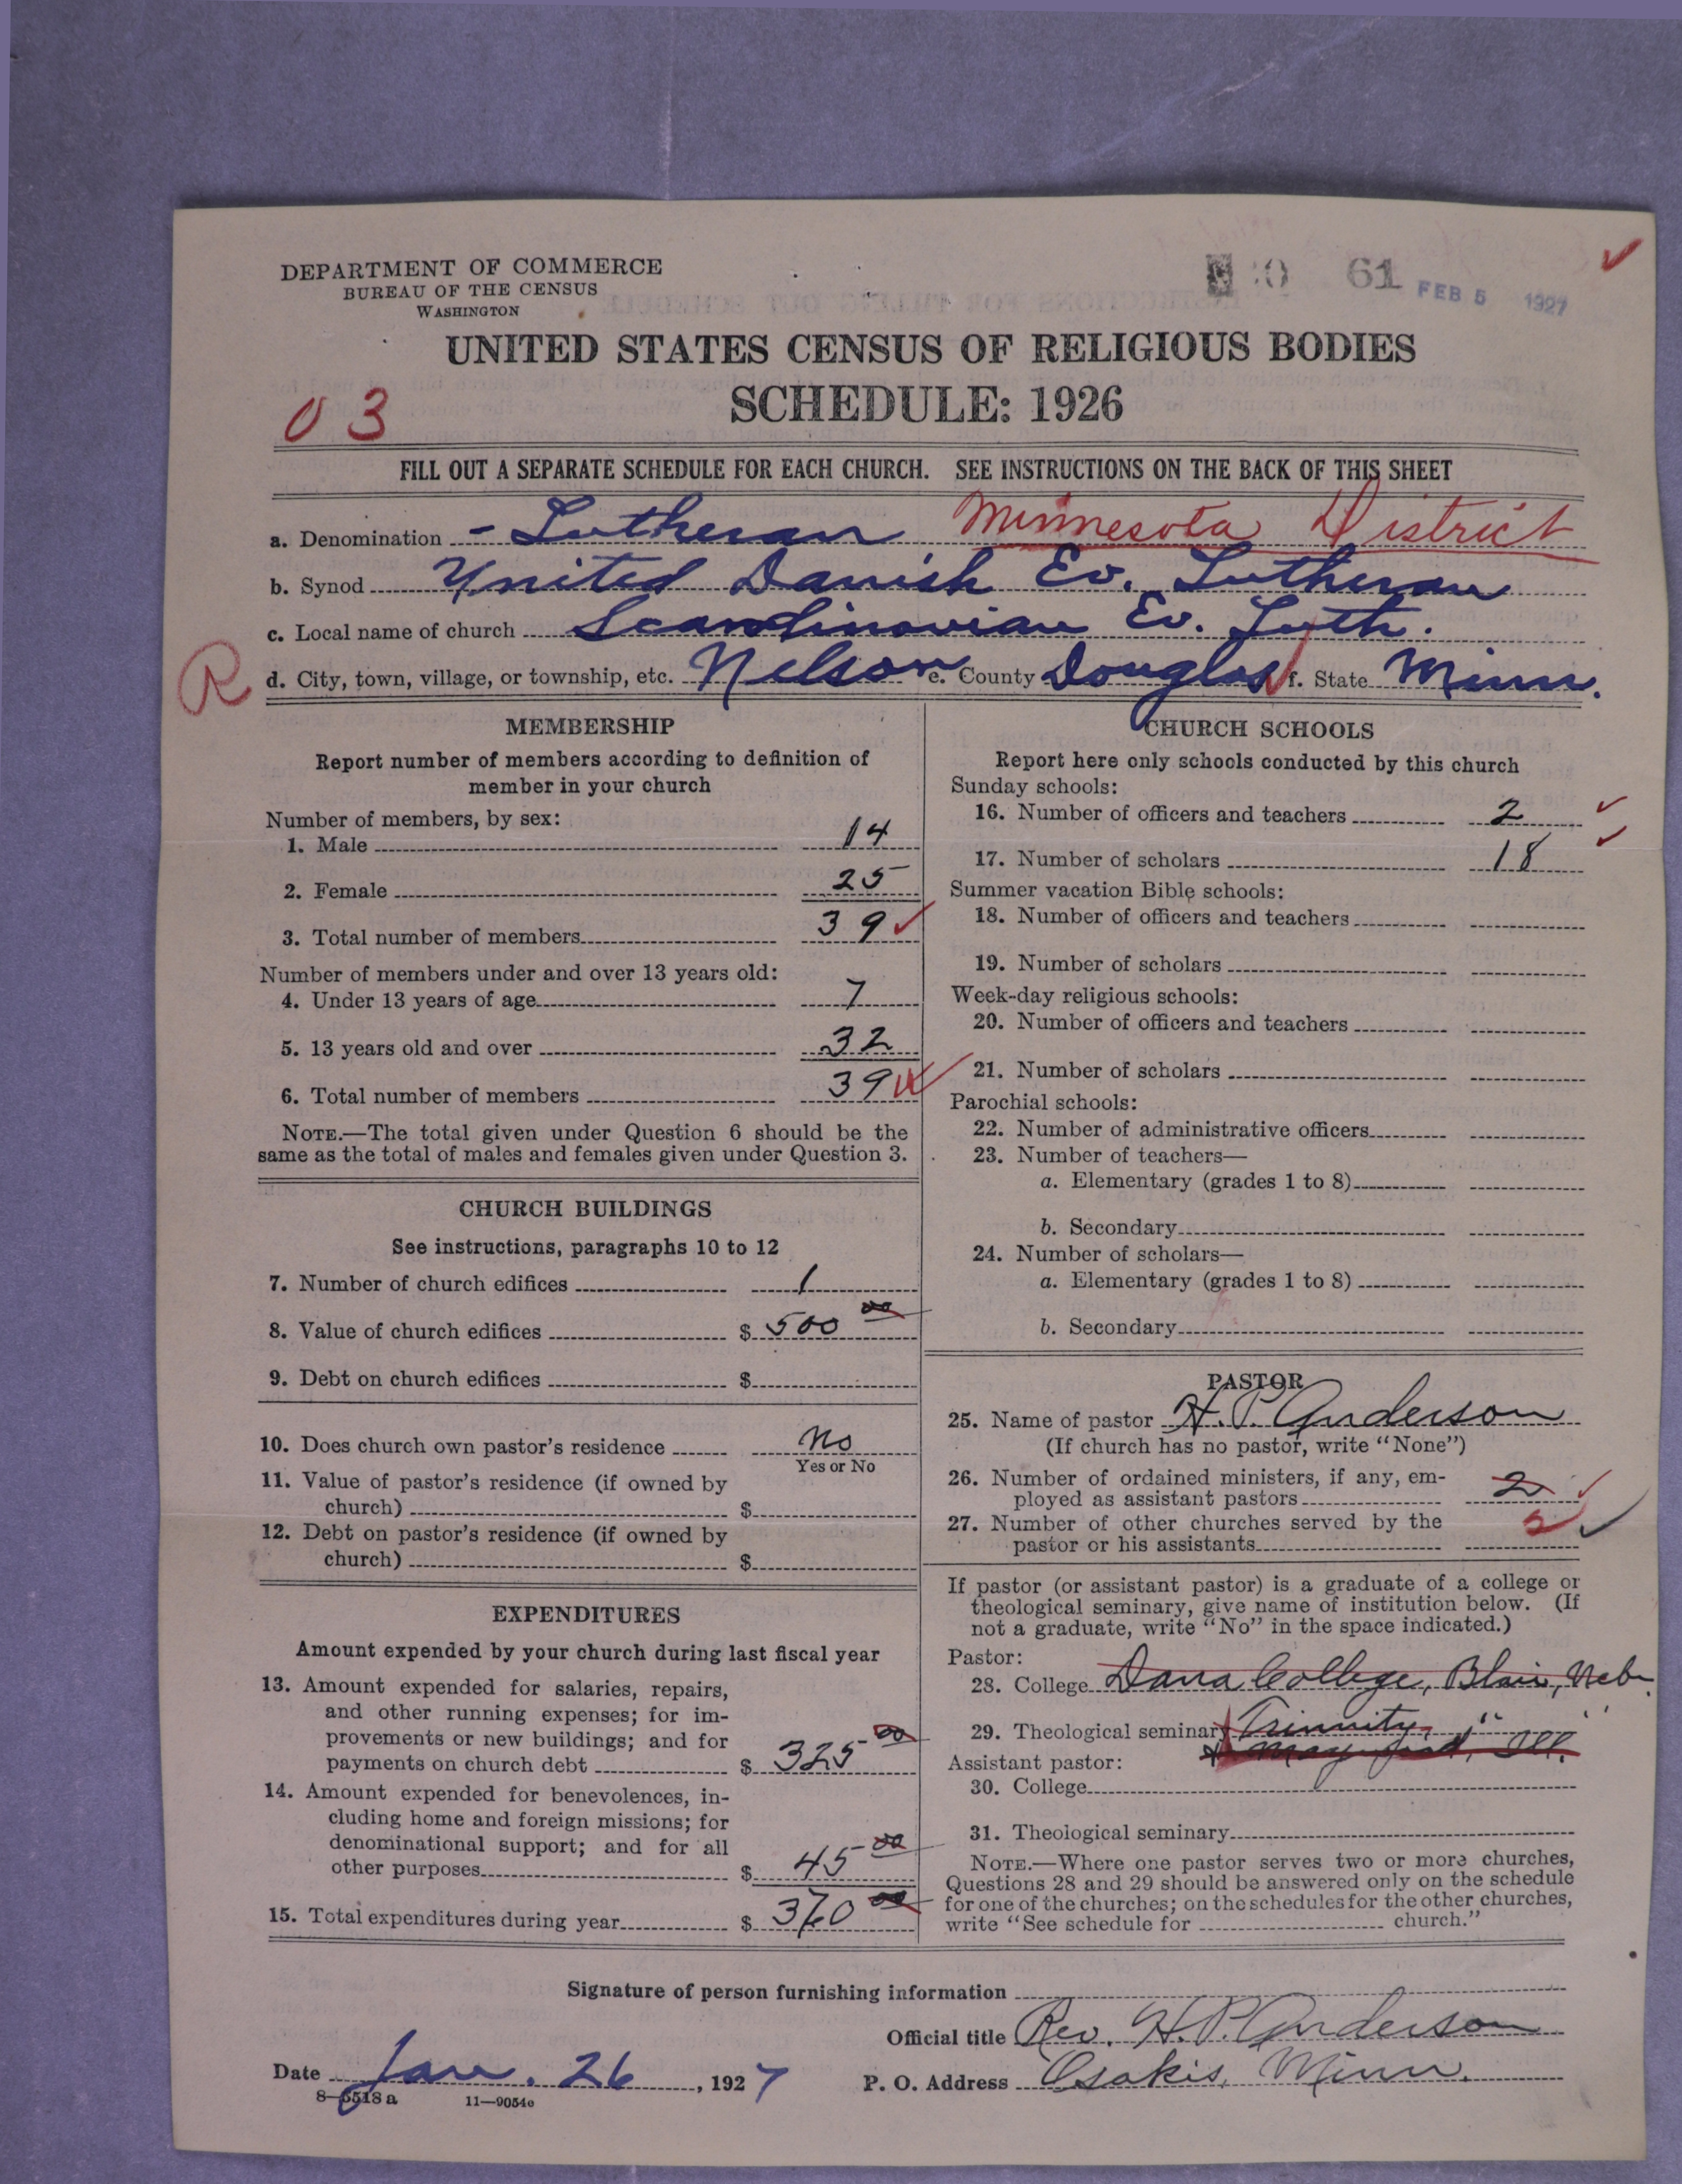 DEPARTMENT OF COMMERCE
BUREAU OF THE CENSUS
WASHINGTON
61 FEB 5 1927
UNITED STATES CENSUS OF RELIGIOUS BODIES
SCHEDULE: 1926
03
FILL OUT A SEPARATE SCHEDULE FOR EACH CHURCH. SEE INSTRUCTIONS ON THE BACK OF THIS SHEET
a. Denomination - Lutheran Minnesota District
b. Synod United Danish Ev. Lutheran
c. Local name of church Scandinavian Ev. Luth.
R
d. City, town, village, or township, etc. Nelson e. County Douglas f. State Minn.
MEMBERSHIP
Report number of members according to definition of
member in your church
Number of members, by sex:
1. Male 14
2. Female 25
3. Total number of members 39
Number of members under and over 13 years old:
4. Under 13 years of age 7
5. 13 years old and over 32
6. Total number of members 39
NOTE.—The total given under Question 6 should be the
same as the total of males and females given under Question 3.
CHURCH BUILDINGS
See instructions, paragraphs 10 to 12
7. Number of church edifices 1
8. Value of church edifices $ 500 00
9. Debt on church edifices $
10. Does church own pastor's residence No
Yes or No
11. Value of pastor's residence (if owned by
church) $
12. Debt on pastor's residence (if owned by
church) $
EXPENDITURES
Amount expended by your church during last fiscal year
13. Amount expended for salaries, repairs,
and other running expenses; for im-
provements or new buildings; and for
payments on church debt $ 325 00
14. Amount expended for benevolences, in-
cluding home and foreign missions; for
denominational support; and for all
other purposes $ 45 00
15. Total expenditures during year $ 370 00
CHURCH SCHOOLS
Report here only schools conducted by this church
Sunday schools:
16. Number of officers and teachers 2
17. Number of scholars 18
Summer vacation Bible schools:
18. Number of officers and teachers
19. Number of scholars
Week-day religious schools:
20. Number of officers and teachers
21. Number of scholars
Parochial schools:
22. Number of administrative officers
23. Number of teachers—
a. Elementary (grades 1 to 8)
b. Secondary
24. Number of scholars—
a. Elementary (grades 1 to 8)
b. Secondary
PASTOR
25. Name of pastor H. P. Anderson
(If church has no pastor, write "None")
26. Number of ordained ministers, if any, em-
ployed as assistant pastors 2
27. Number of other churches served by the
pastor or his assistants 2
If pastor (or assistant pastor) is a graduate of a college or
theological seminary, give name of institution below. (If
not a graduate, write "No" in the space indicated.)
Pastor:
28. College Dana College, Blair, Neb.
29. Theological seminary Trinnity, " "
Ill.
Assistant pastor:
30. College
31. Theological seminary
NOTE.—Where one pastor serves two or more churches,
Questions 28 and 29 should be answered only on the schedule
for one of the churches; on the schedules for the other churches,
write "See schedule for church."
Signature of person furnishing information
Official title Rev. H. P. Anderson
Date Jan. 26, 1927
P. O. Address Osakis, Minn.
8—6518 a 11—9054e